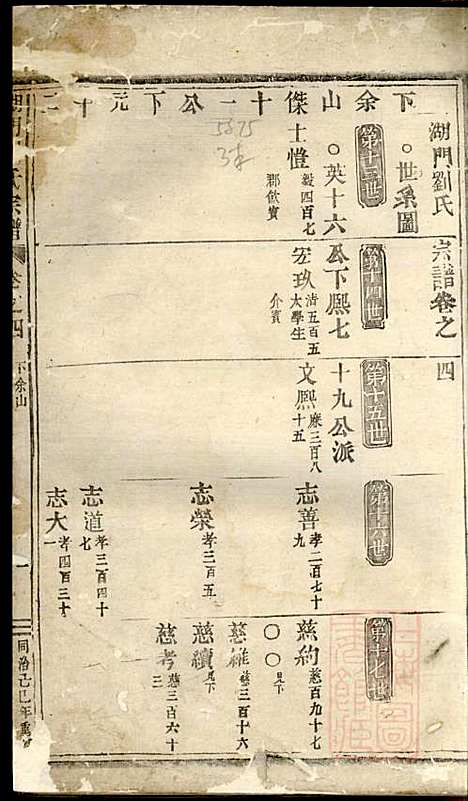 湖門劉氏宗譜卷之四
世系圖
下余山傑十一公下元十三
第十三世
第十四世
第十五世
第十六世
第十七世
英十六公下熙七十九公派
士愷 毅四百七
鄉飲賓
宏玖 清五百五
太學生
介賓
文熙 廉三百八
十五
志善 孝二百七十
九
慈約 慈百九十七
○○ 見下
慈維 慈三百十六
志榮 孝三百五
慈續 見下
慈考 慈三百六十
三
志道 孝三百四十
七
志大 孝四百三十
一
5675
氏宗譜
卷之四
下余山
一
同治己巳年重